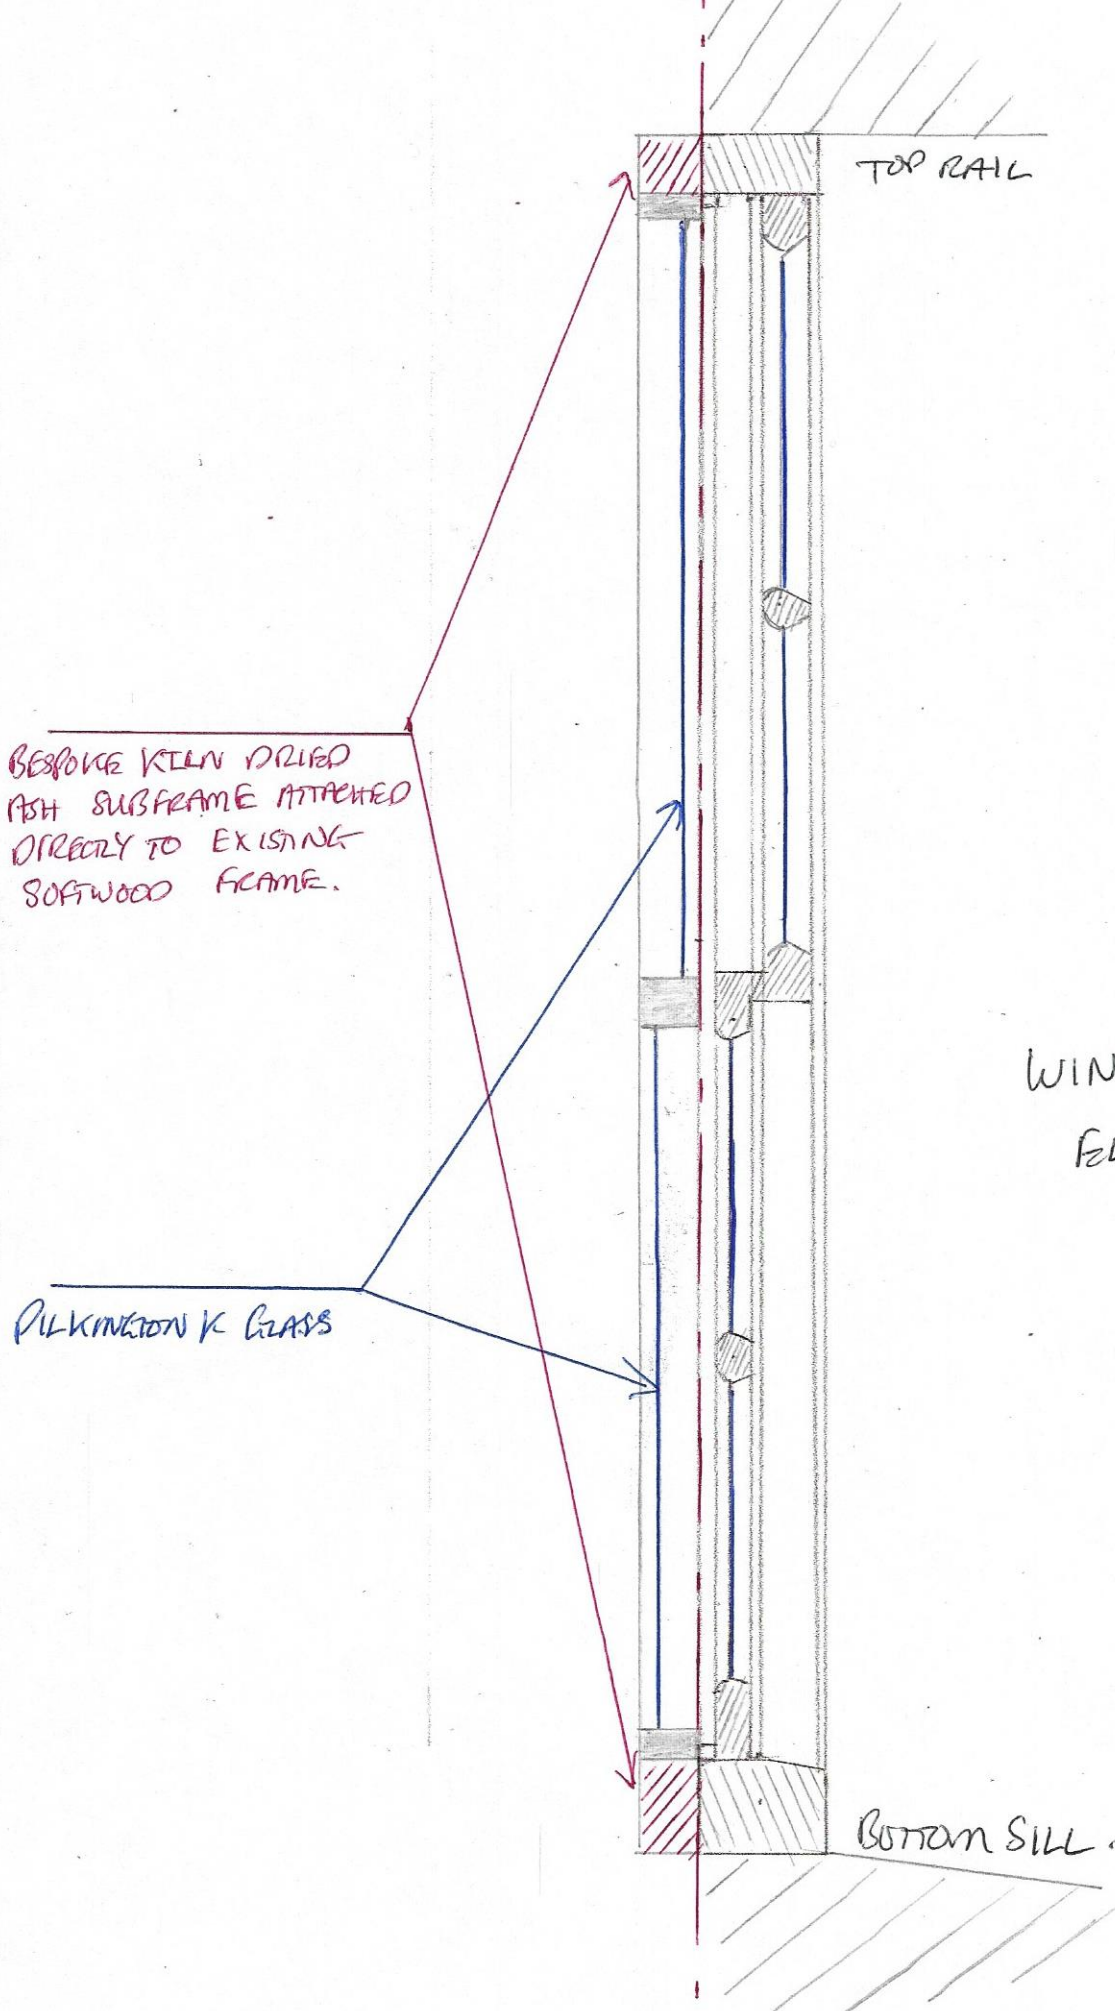 TOP RAIL
BESPOKE KILN DRIED
ASH SUBFRAME ATTACHED
DIRECTLY TO EXISTING
SOFTWOOD FRAME.
WIN
PILKINGTON K GLASS
BOTTOM SILL.